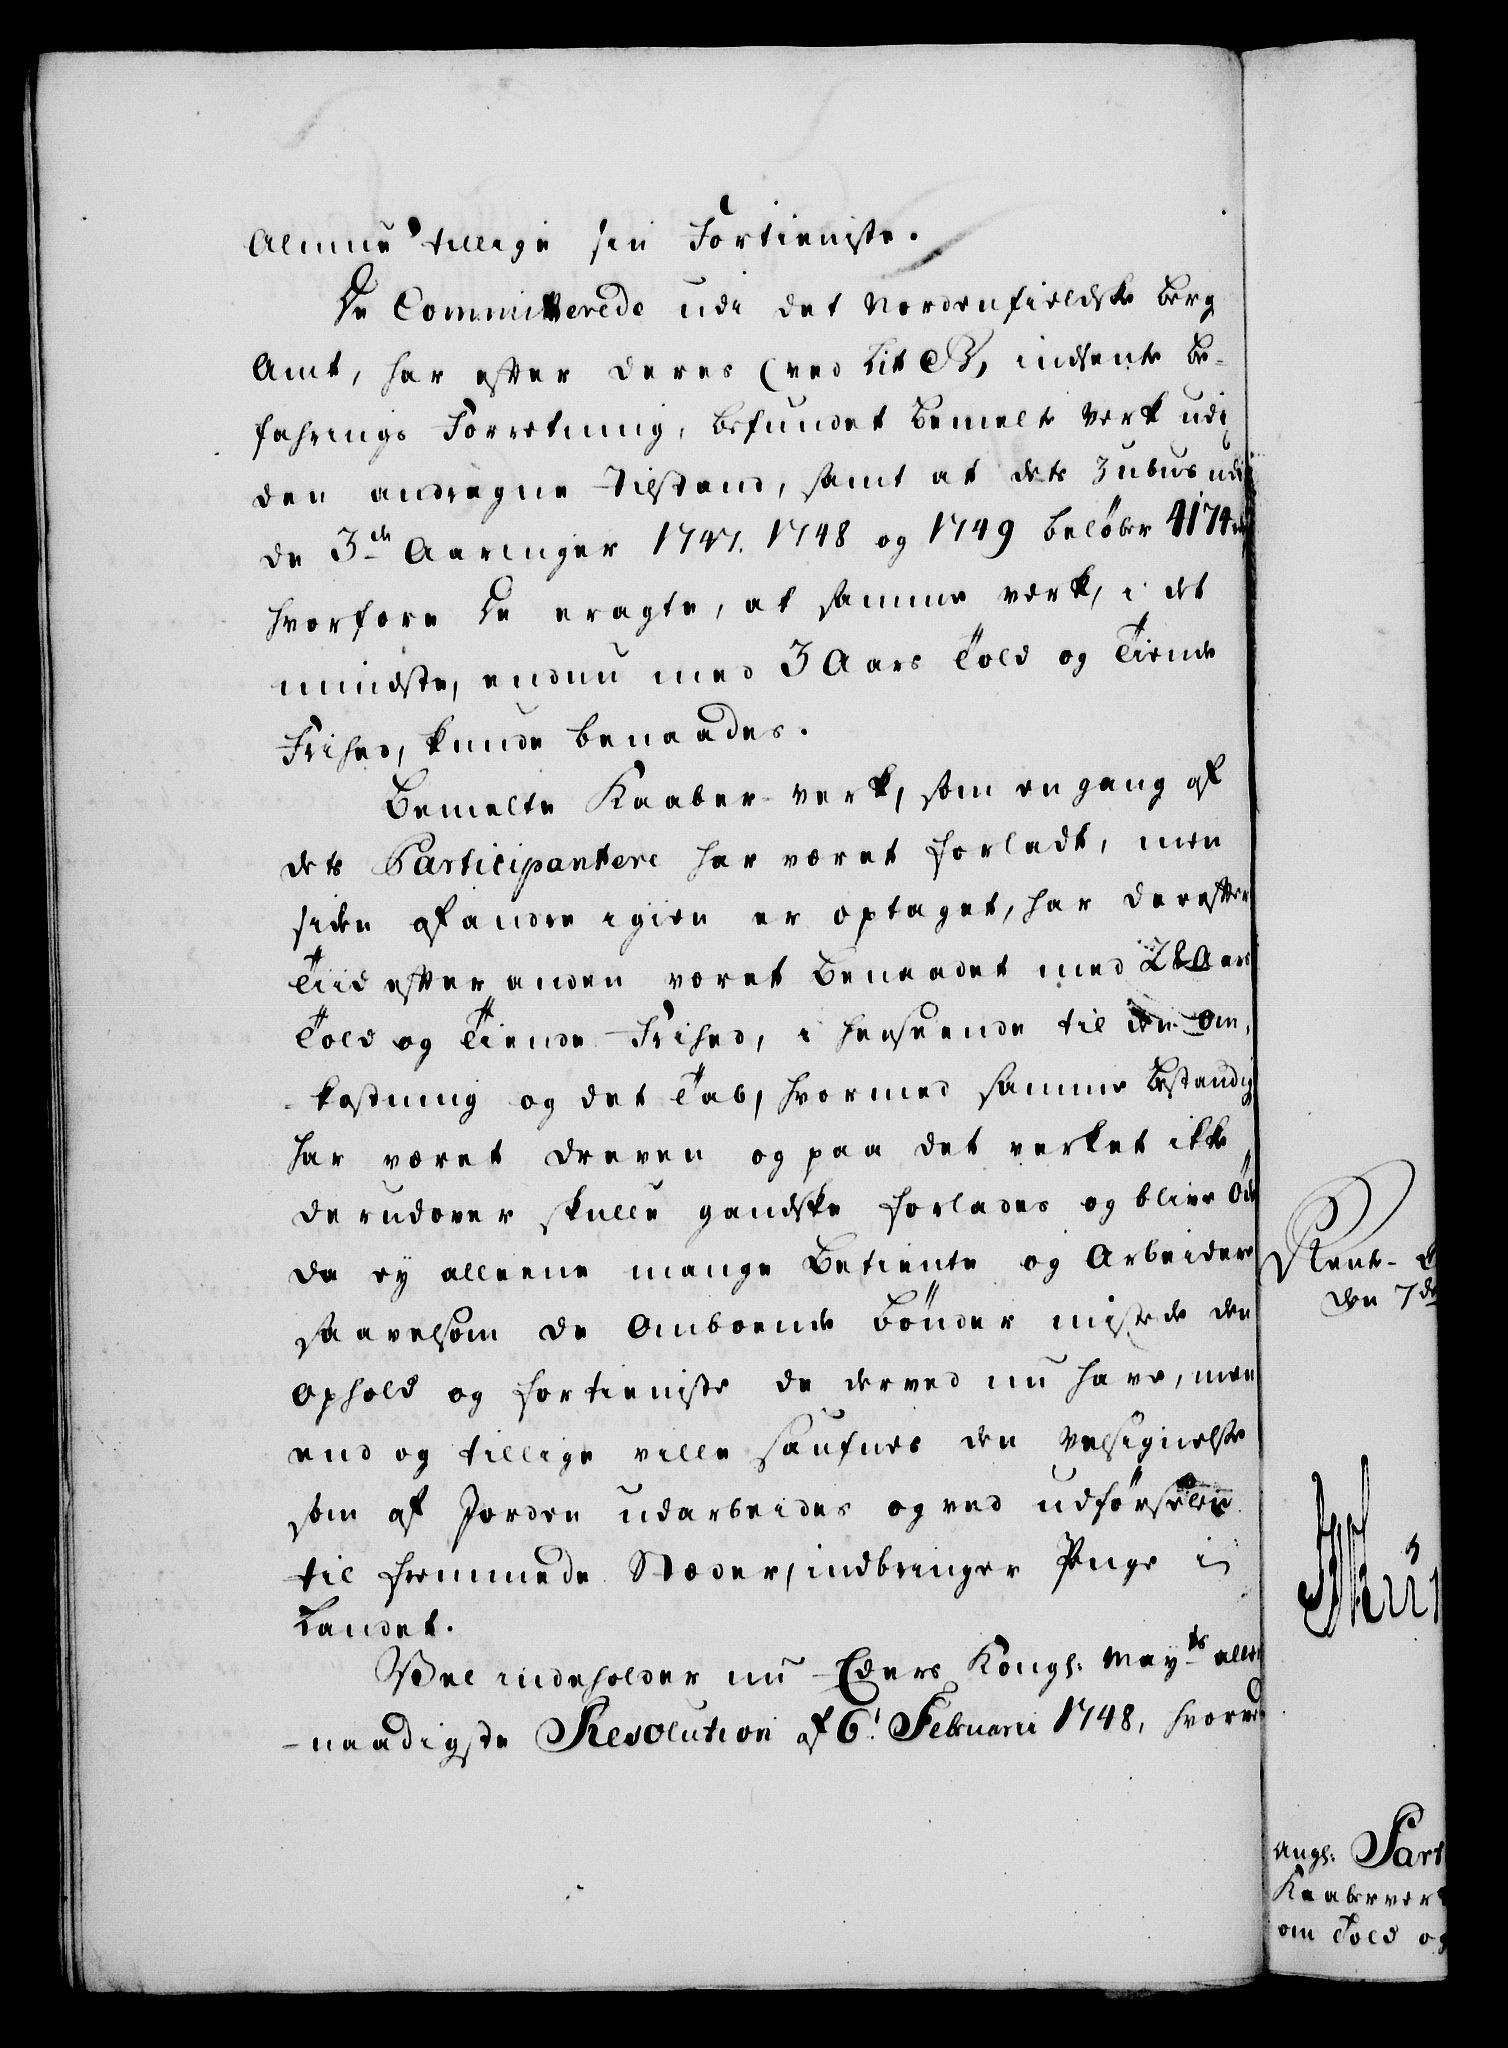 Almue tillige sin Fortieniste.
De Committerede udi det Nordenfieldske Berg
Amt, har efter deres (ved Lit B, indsente Be-
fahrings Forretning, befundet bemelte Verk udi
den andragne Tilstand, samt at dets Zubus udi
de 3de Aaringer 1747. 1748 og 1749 beløber 4174
hvorfore De eragte, at samme verk, i det
mindste, endnu med 3 Aars Told og Tiende
Frihed, kunde benaades.
Bemelte Kaaber-verk, som en gang af
dets Participantere har været forladt, men
siden af andre igien er optaget, har derefter
Tiid efter anden været benaadet med Aars
Told og Tiende Frihed, i henseende til den Om-
kostning og det Tab, hvormed samme bestandig
har været dreven og paa det verket ikke
derudover skulle gandske forlades og blive Öde
da ey alleene mange Betiente og Arbeidere
saavelsom de Omboende Bönder miste de den
Ophold og fortieniste de derved nu have, men
end og tillige ville saufnes den Velsignelse
som af Jorden udarbeides og ved udförselen
til fremmede Stæder, indbringer Penge i
Landet.
Vel indeholder nu Eders Kongl: Mayts aller
-naadigste Resolution af 6. Februarii 1748, hvorved
Rent-
den 7de
angl: Part
Kaaberver
om Told og